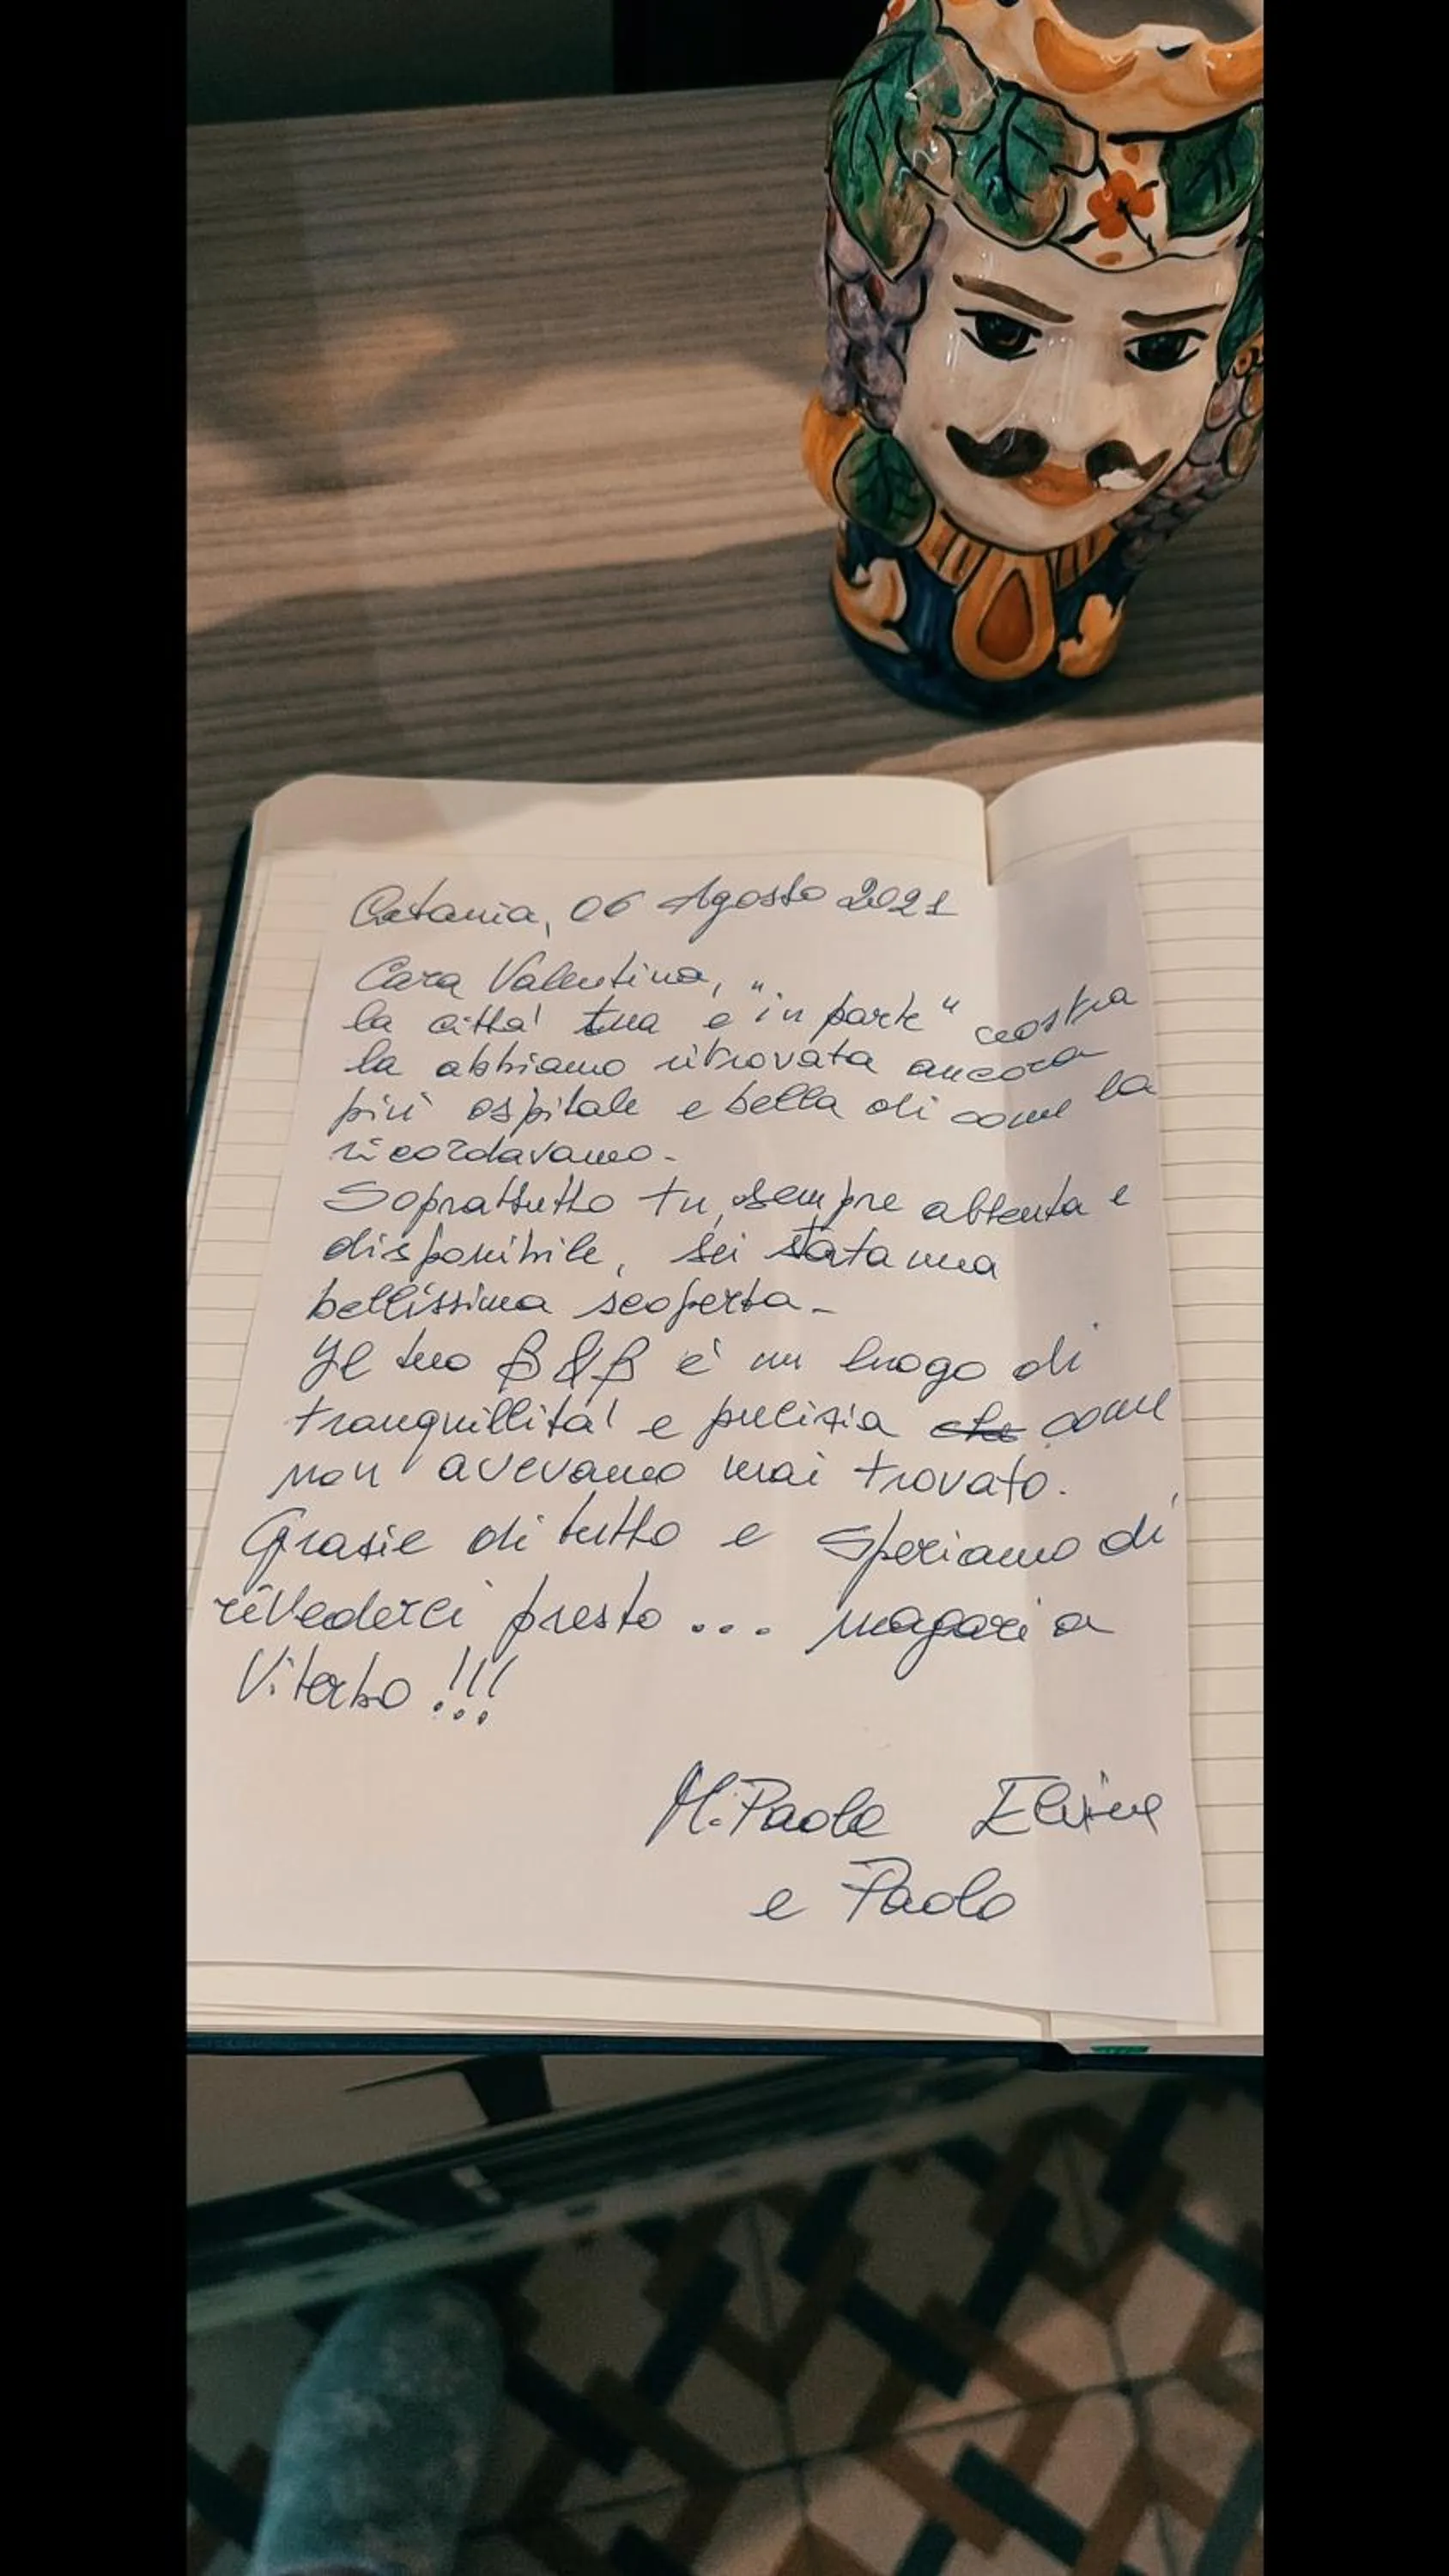 Catania, 06 Agosto 2021
Cara Valentina,
la citta' tua e "in parte" nostra
la abbiamo ritrovata ancora
più ospitale e bella di come la
ricordavamo.
Soprattutto tu, sempre attenta e
disponibile, sei stata una
bellissima scoperta.
Il tuo B&B è un luogo di
tranquillita' e pulizia che come
non avevamo mai trovato.
Grazie di tutto e speriamo di
rivederci presto... magari a
Viterbo!!!
M.Paola
e Paolo